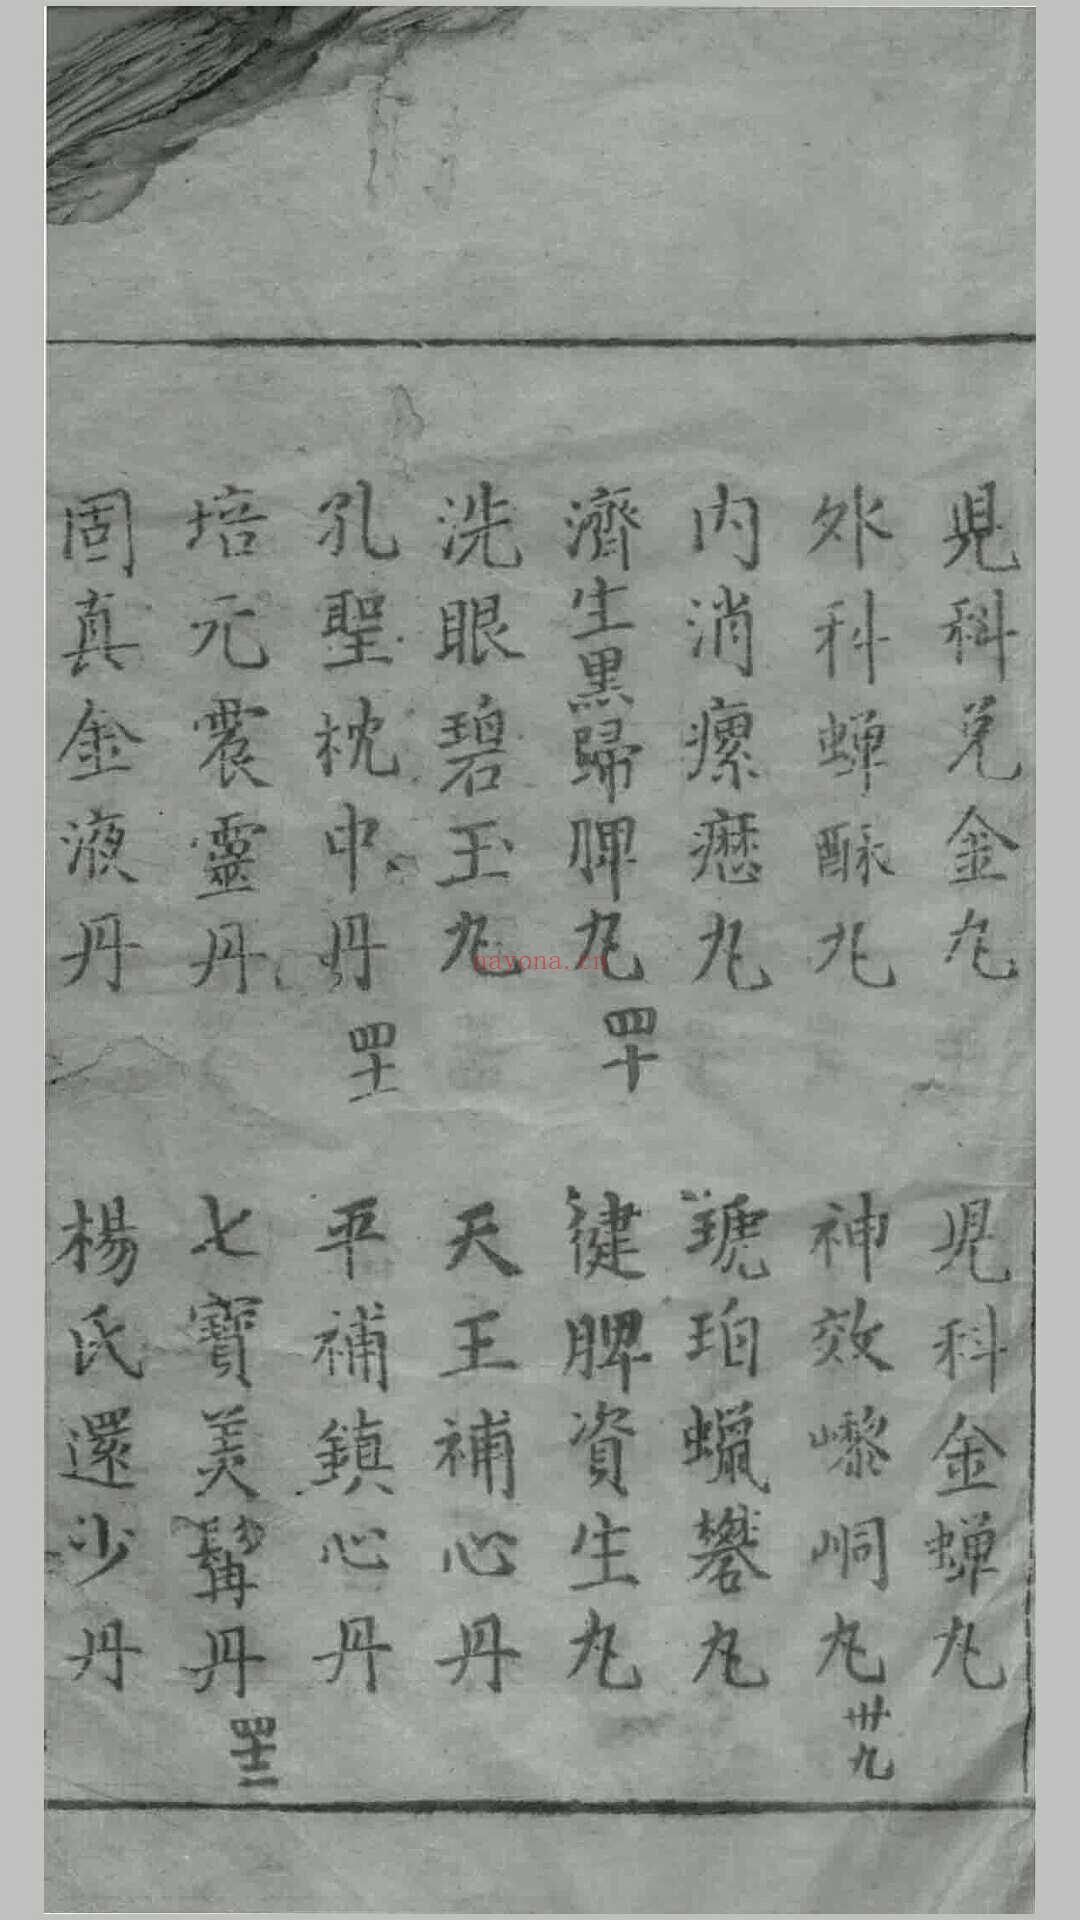 児科兑金丸
児科金蟬丸
外科蟬酥丸
神效嚟峒丸
卅九
内消瘰癧丸
琥珀蠟礬丸
濟生黑歸脾丸
四十
健脾資生丸
洗眼碧玉丸
天王補心丹
孔聖枕中丹
四十一
平補鎮心丹
培元震靈丹
七寶美髯丹
四十二
固真金液丹
楊氏還少丹
nayona.cn